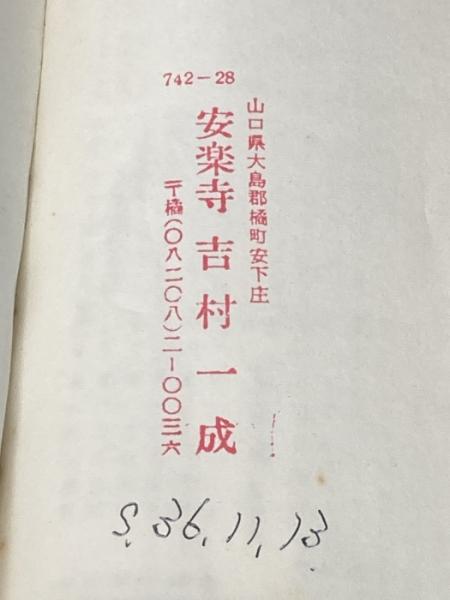 742-28
山口県大島郡橘町安下庄
安楽寺 吉村一成
〒橘(〇八二〇八)二-〇〇三六
S.36.11.13